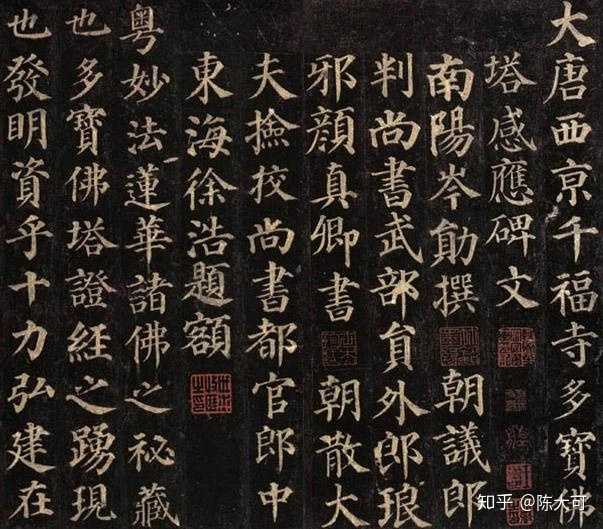 大唐西亰千福寺多寶佛
塔感應碑文
南陽岑勛撰 朝議郎
判尚書武部員外郎琅
邪顏真卿書 朝散大
夫撿挍尚書都官郎中
東海徐浩題額
粤妙法蓮華諸佛之秘藏
也多寶佛塔證經之踴現
也發明資乎十力弘建在
知乎 @陈大可